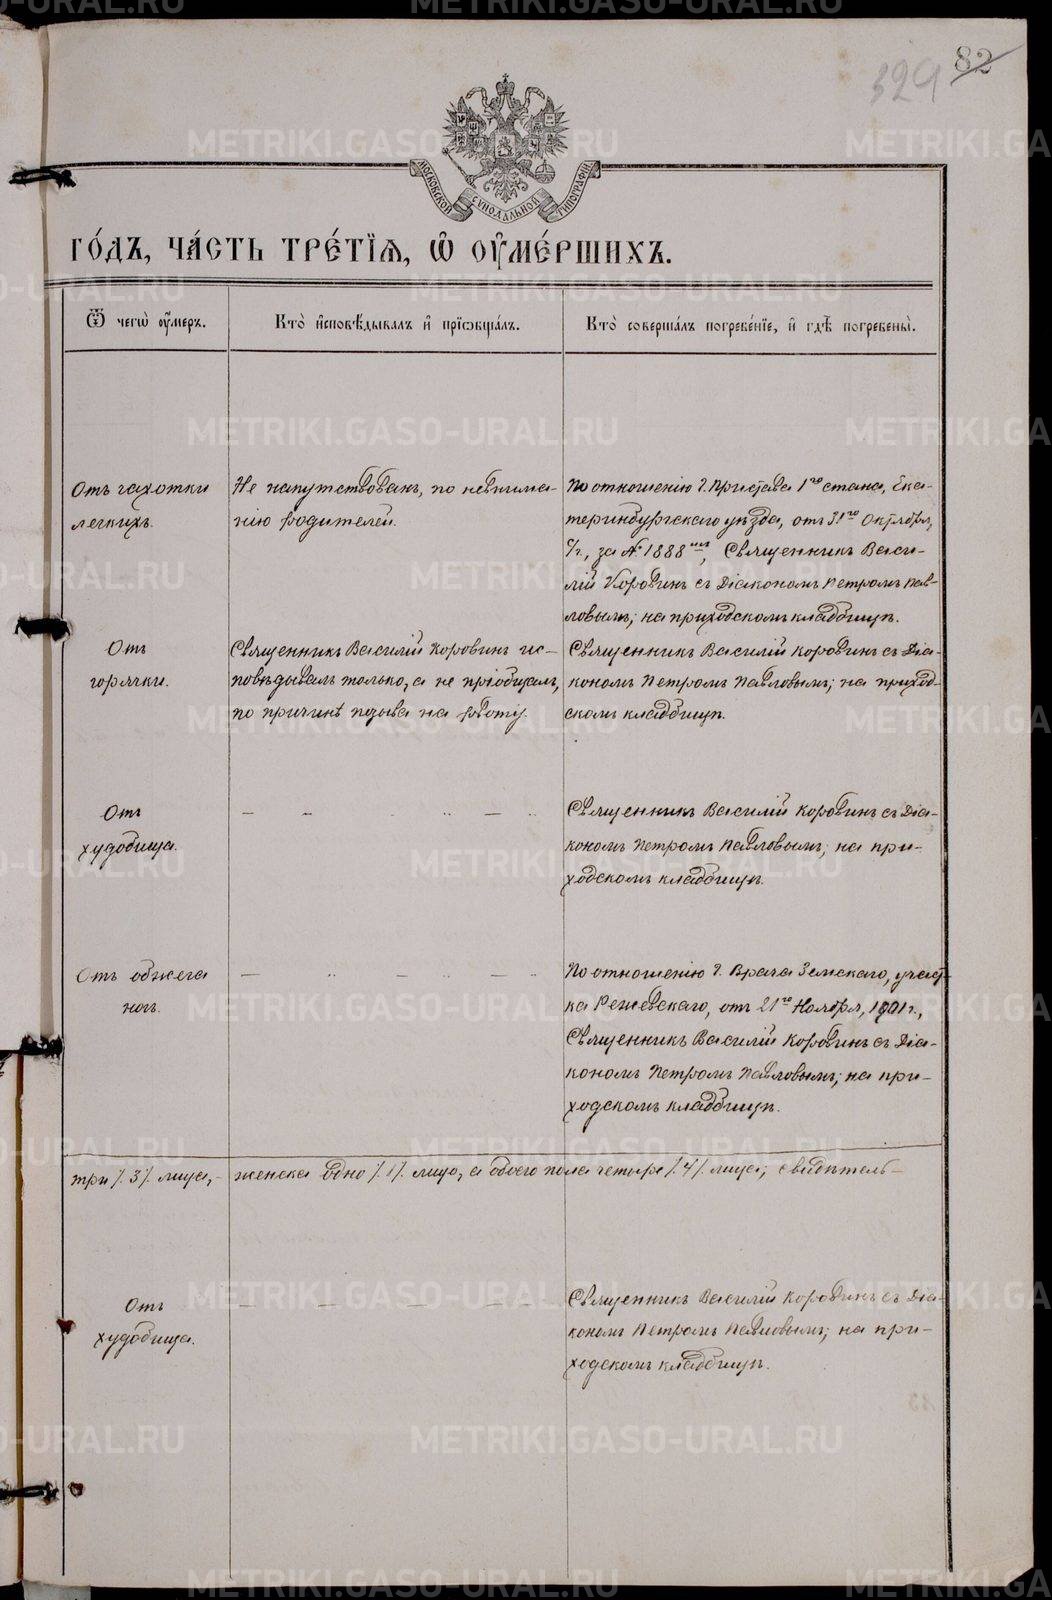 82
329
МОСКОВСКОЙ СѴНОДАЛЬНОЙ ТИПОГРАФІИ
ГО́ДЪ, ЧА́СТЬ ТРЕ́ТЇѦ, Ѡ҆ ОУ҆МЕ́РШИХЪ.
Ѿ чегѡ̀ оу҆́меръ.
Кто̀ и҆сповѣ́дывалъ и҆ прїѡбща́лъ.
Кто̀ соверша́лъ погребе́нїе, и҆ гдѣ̀ погребены̀.
Отъ чахотки
легкихъ.
Не напутствованъ, по невнима-
нію родителей.
По отношенію г. Пристава 1го стана, Ека-
теринбургскаго уѣзда, отъ 31го Октября,
с/г., за № 1888мъ, Священникъ Васи-
лій Коровинъ съ Діакономъ Петромъ Пав-
ловымъ; на приходскомъ кладбищѣ.
Отъ
горячки.
Священникъ Василій Коровинъ ис-
повѣдывалъ только, а не пріобщалъ,
по причинѣ позыва на рвоту.
Священникъ Василій Коровинъ съ Діа-
кономъ Петромъ Павловымъ; на приход-
скомъ кладбищѣ.
Отъ
худобища.
Священникъ Василій Коровинъ съ Діа-
кономъ Петромъ Павловымъ; на при-
ходскомъ кладбищѣ.
Отъ обжега
ногъ.
По отношенію г. Врача Земскаго, участ-
ка Режевскаго, отъ 21го Ноября, 1901 г.,
Священникъ Василій Коровинъ съ Діа-
кономъ Петромъ Павловымъ; на при-
ходскомъ кладбищѣ.
три /.3/. лица, женска одно /.1/. лицо, а обоего пола четыре /.4/. лица; свидѣтель-
Отъ
худобища.
Священникъ Василій Коровинъ съ Діа-
кономъ Петромъ Павловымъ; на при-
ходскомъ кладбищѣ.
METRIKI.GASO-URAL.RU